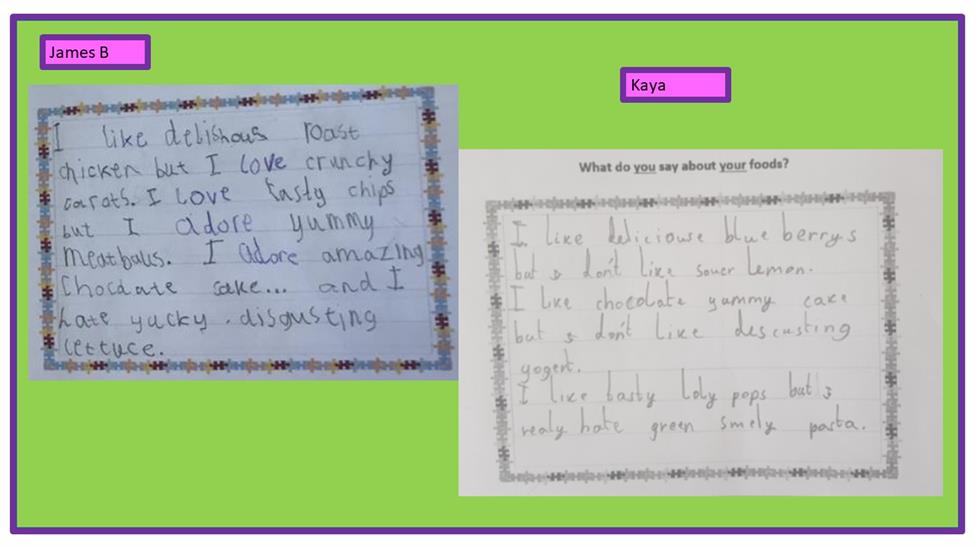 James B
I like delishous roast
chicken but I love crunchy
carots. I love tasty chips
but I adore yummy
meatbaus. I adore amazing
Chocolate cake... and I
hate yucky . disgusting
lettuce.
Kaya
What do you say about your foods?
I like deliciouse blue berrys
but I don't like souer lemon.
I like chocolate yummy cake
but I don't like descusting
yogert.
I like tasty loly pops but I
realy hate green smely pasta.